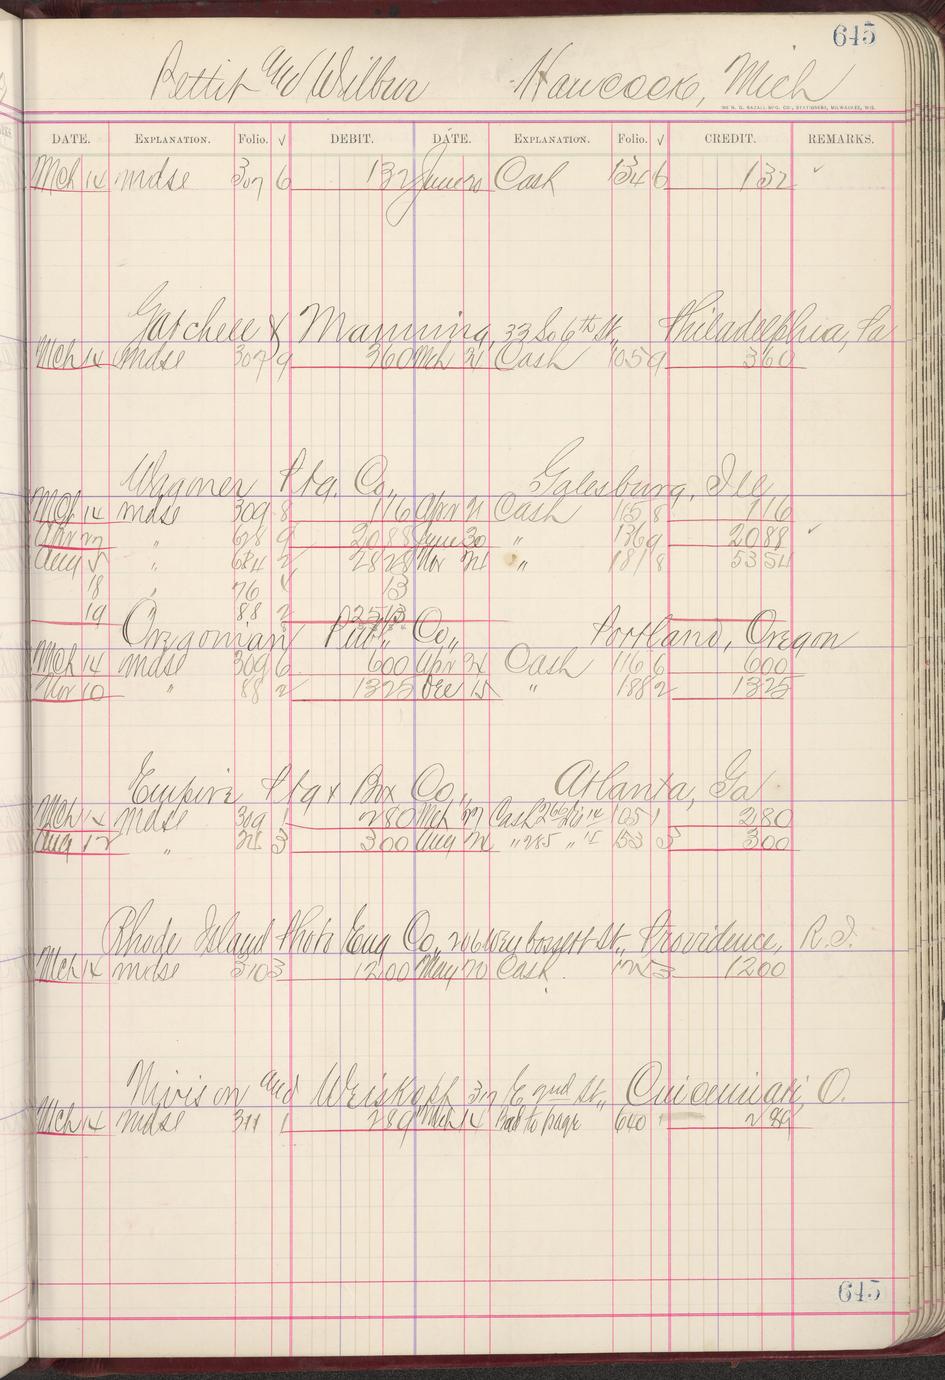 645
Pettit and Wilbur Hancock, Mich
THE H. G. RAZALL MFG. CO., STATIONERS, MILWAUKEE, WIS.
DATE. EXPLANATION. Folio. √ DEBIT. DATE. EXPLANATION. Folio. √ CREDIT. REMARKS.
Mch 14 mdse 307 6 132 June 20 Cash 134 6 132 ✓
Gatchell & Manning, 33 So 6th St., Philadelphia, Pa
Mch 14 mdse 307 9 360 Mch 31 Cash 105 9 360
Wagner Ptg. Co., Galesburg, Ill
Mch 14 mdse 309 8 116 Apr 21 Cash 115 8 116
Apr 27 " 628 9 2088 June 30 " 136 9 2088 ✓
Aug 5 " 684 2 2828 Nov 21 " 181 8 5354
18 " 76 4 13
19 88 2 2513
Oregonian Pub. Co., Portland, Oregon
Mch 14 mdse 309 6 600 Apr 24 Cash 116 6 600
Nov 10 " 88 2 1325 Dec 15 " 188 2 1325
Empire Ptg & Box Co., Atlanta, Ga
Mch 14 mdse 309 1 280 Mch 27 Cash 105 1 280
Aug 12 " 21 3 300 Aug 24 " 285 " 15 153 3 300
Rhode Island Photo Eng Co., 206 Weybossett St., Providence, R.I.
Mch 14 mdse 310 3 1200 May 20 Cash 125 3 1200
Nivison and Weiskopf 317 E 2nd St., Cincinnati O.
Mch 14 mdse 311 1 289 Mch 14 to page 640 1 289
645